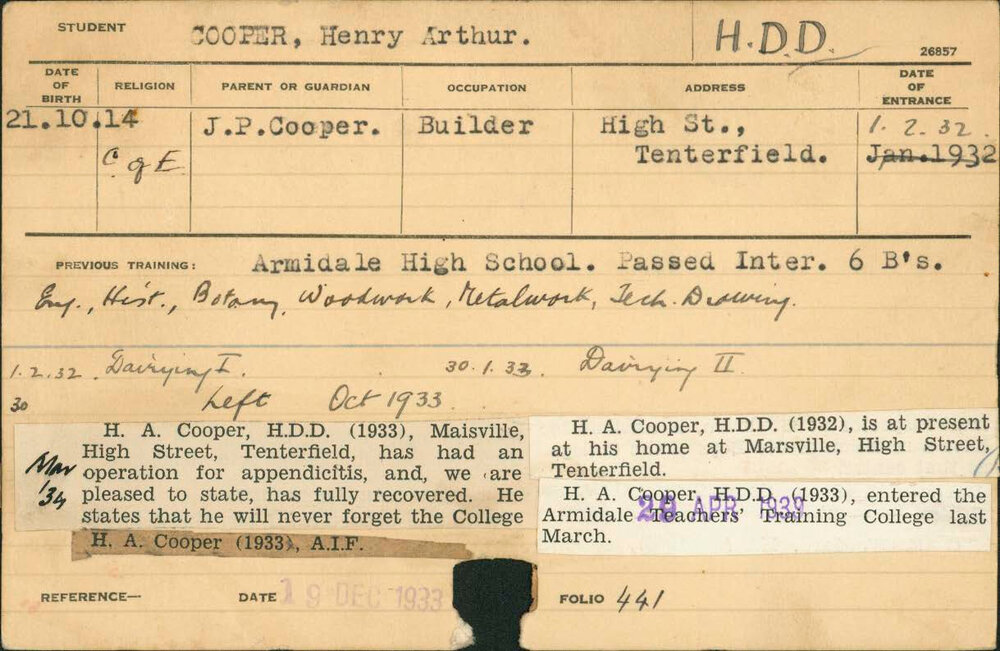 STUDENT COOPER, Henry Arthur. H.D.D. 26857
DATE OF BIRTH RELIGION PARENT OR GUARDIAN OCCUPATION ADDRESS DATE OF ENTRANCE
21.10.14 J.P.Cooper. Builder High St., 1.2.32.
C of E Tenterfield. Jan.1932
PREVIOUS TRAINING: Armidale High School. Passed Inter. 6 B's.
Eng., Hist., Botany, Woodwork, Metalwork, Tech. Drawing.
1.2.32. Dairying I. 30.1.33. Dairying II
30 Left Oct 1933.
Mar '34
H. A. Cooper, H.D.D. (1933), Maisville,
High Street, Tenterfield, has had an
operation for appendicitis, and, we are
pleased to state, has fully recovered. He
states that he will never forget the College
H. A. Cooper (1933), A.I.F.
H. A. Cooper, H.D.D. (1932), is at present
at his home at Marsville, High Street,
Tenterfield.
H. A. Cooper, H.D.D. (1933), entered the
Armidale Teachers' Training College last
March.
28 APR 1939
REFERENCE— DATE 19 DEC 1933 FOLIO 441